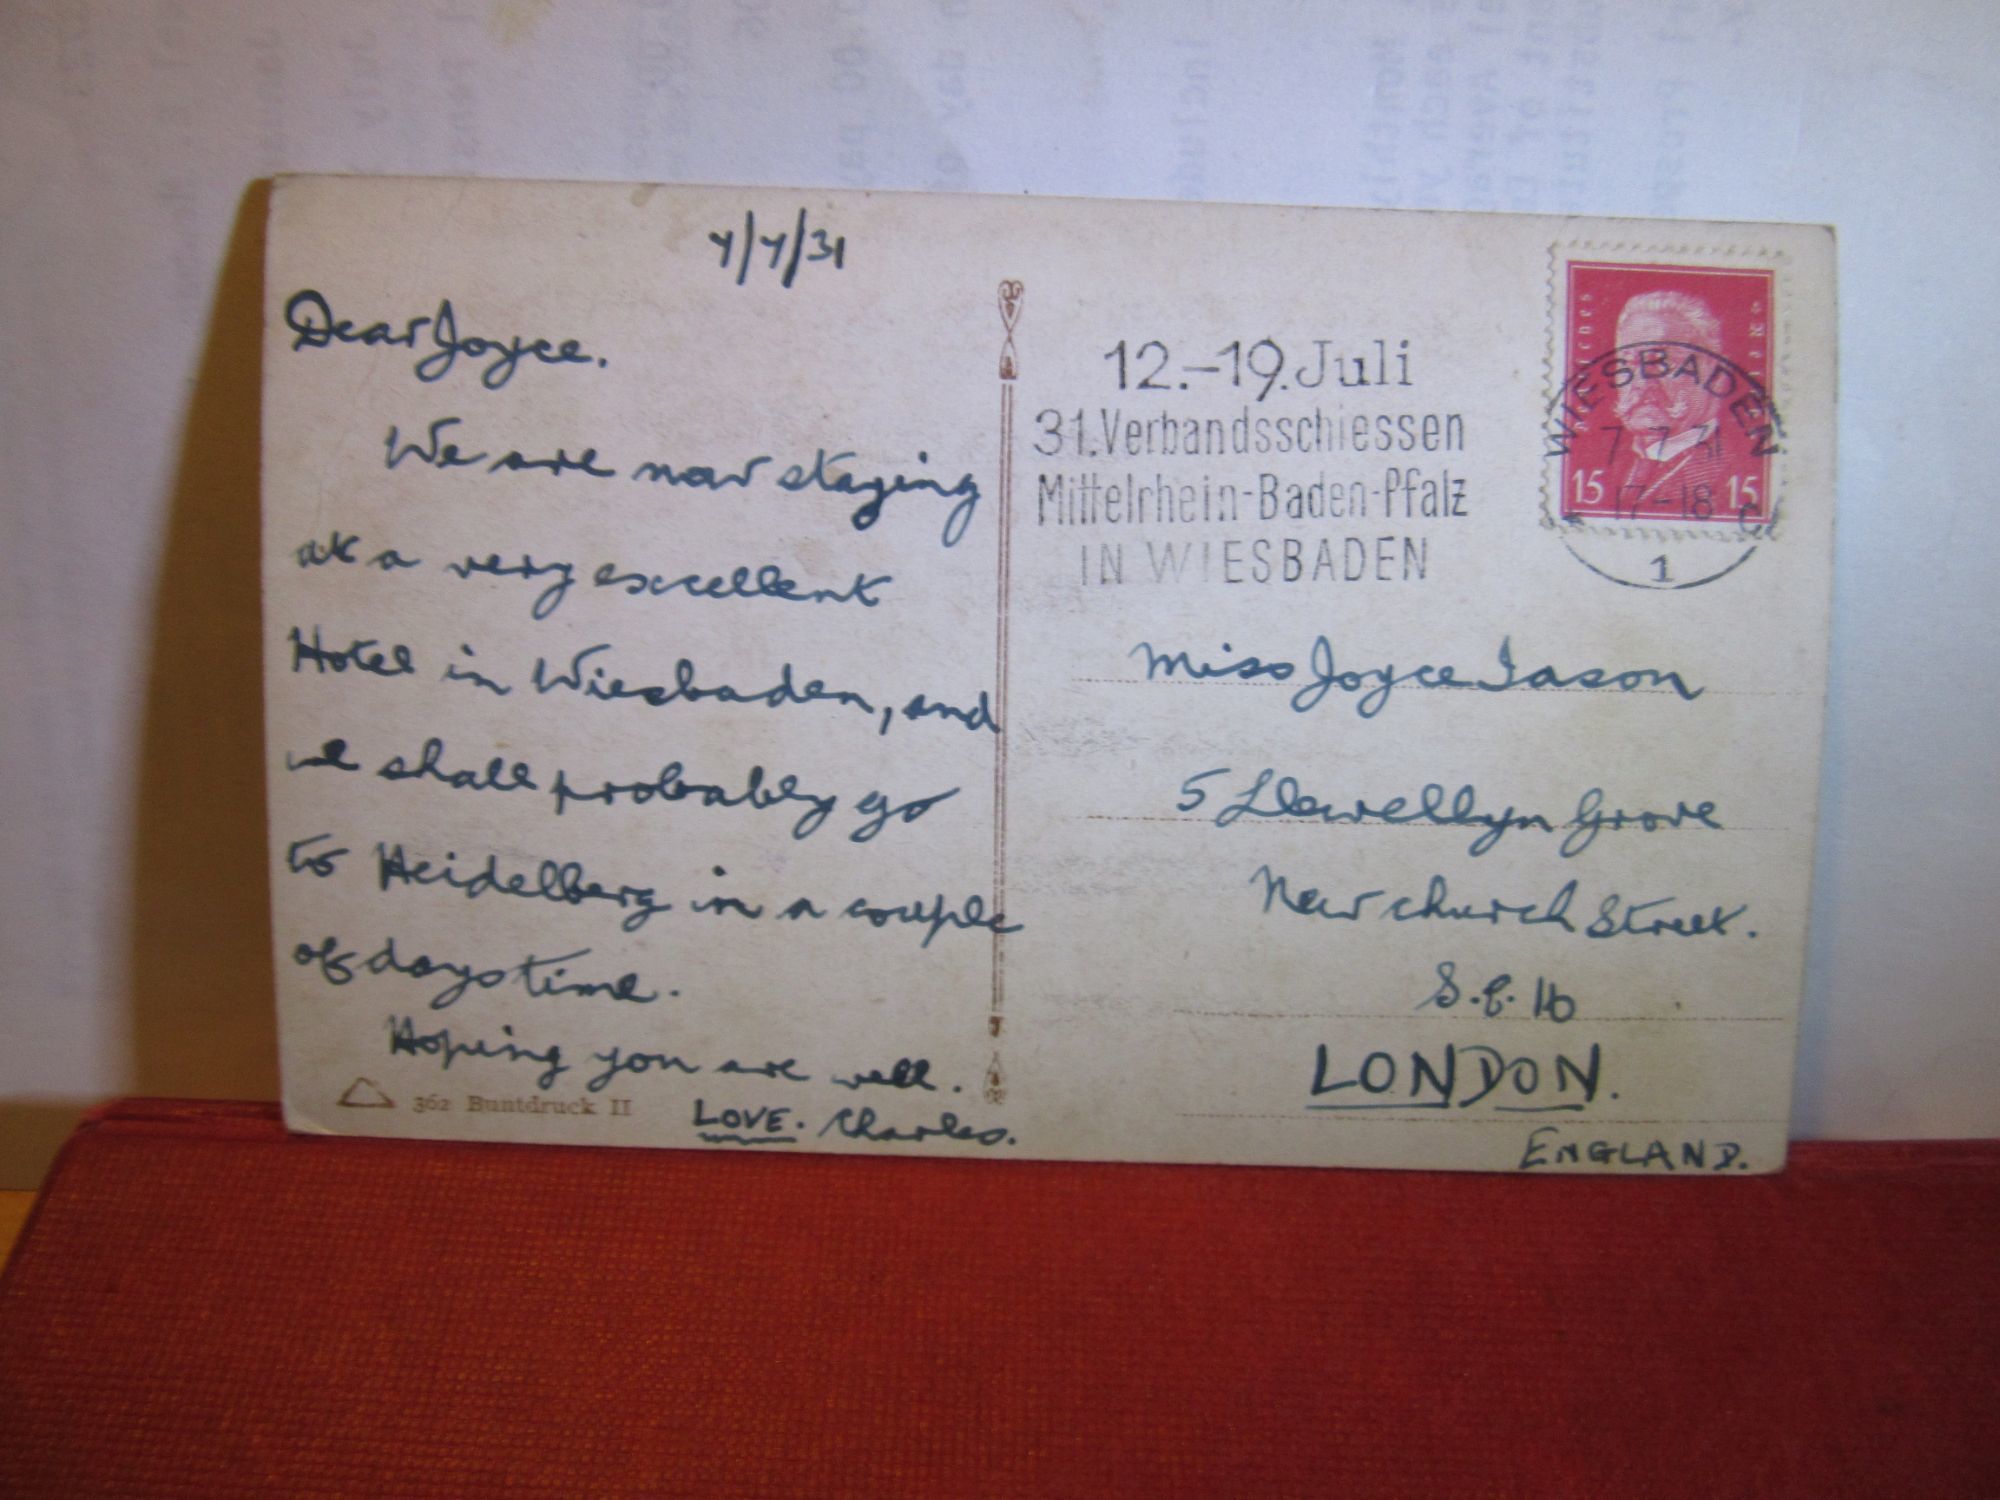 7/7/31
Dear Joyce.
We are now staying
at a very excellent
Hotel in Wiesbaden, and
we shall probably go
to Heidelberg in a couple
of days time.
Hoping you are well.
LOVE. Charles.
362 Buntdruck II
12.-19. Juli
31. Verbandsschiessen
Mittelrhein-Baden-Pfalz
IN WIESBADEN
15 15
WIESBADEN
7.7.31
17-18
1
Miss Joyce Jason
5 Llewellyn Grove
New church Street.
S.E. 16
LONDON.
ENGLAND.